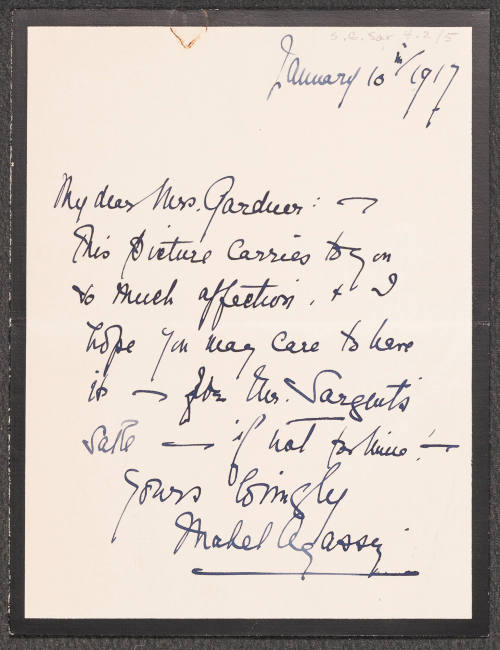 S.e.Sar 4.2/5
January 10th/1917
My dear Mrs. Gardner: —
This Picture carries to you
so much affection. & I
hope you may care to have
it — for Mr. Sargent's
sake — if not for mine! —
Yours lovingly
Mabel Agassiz